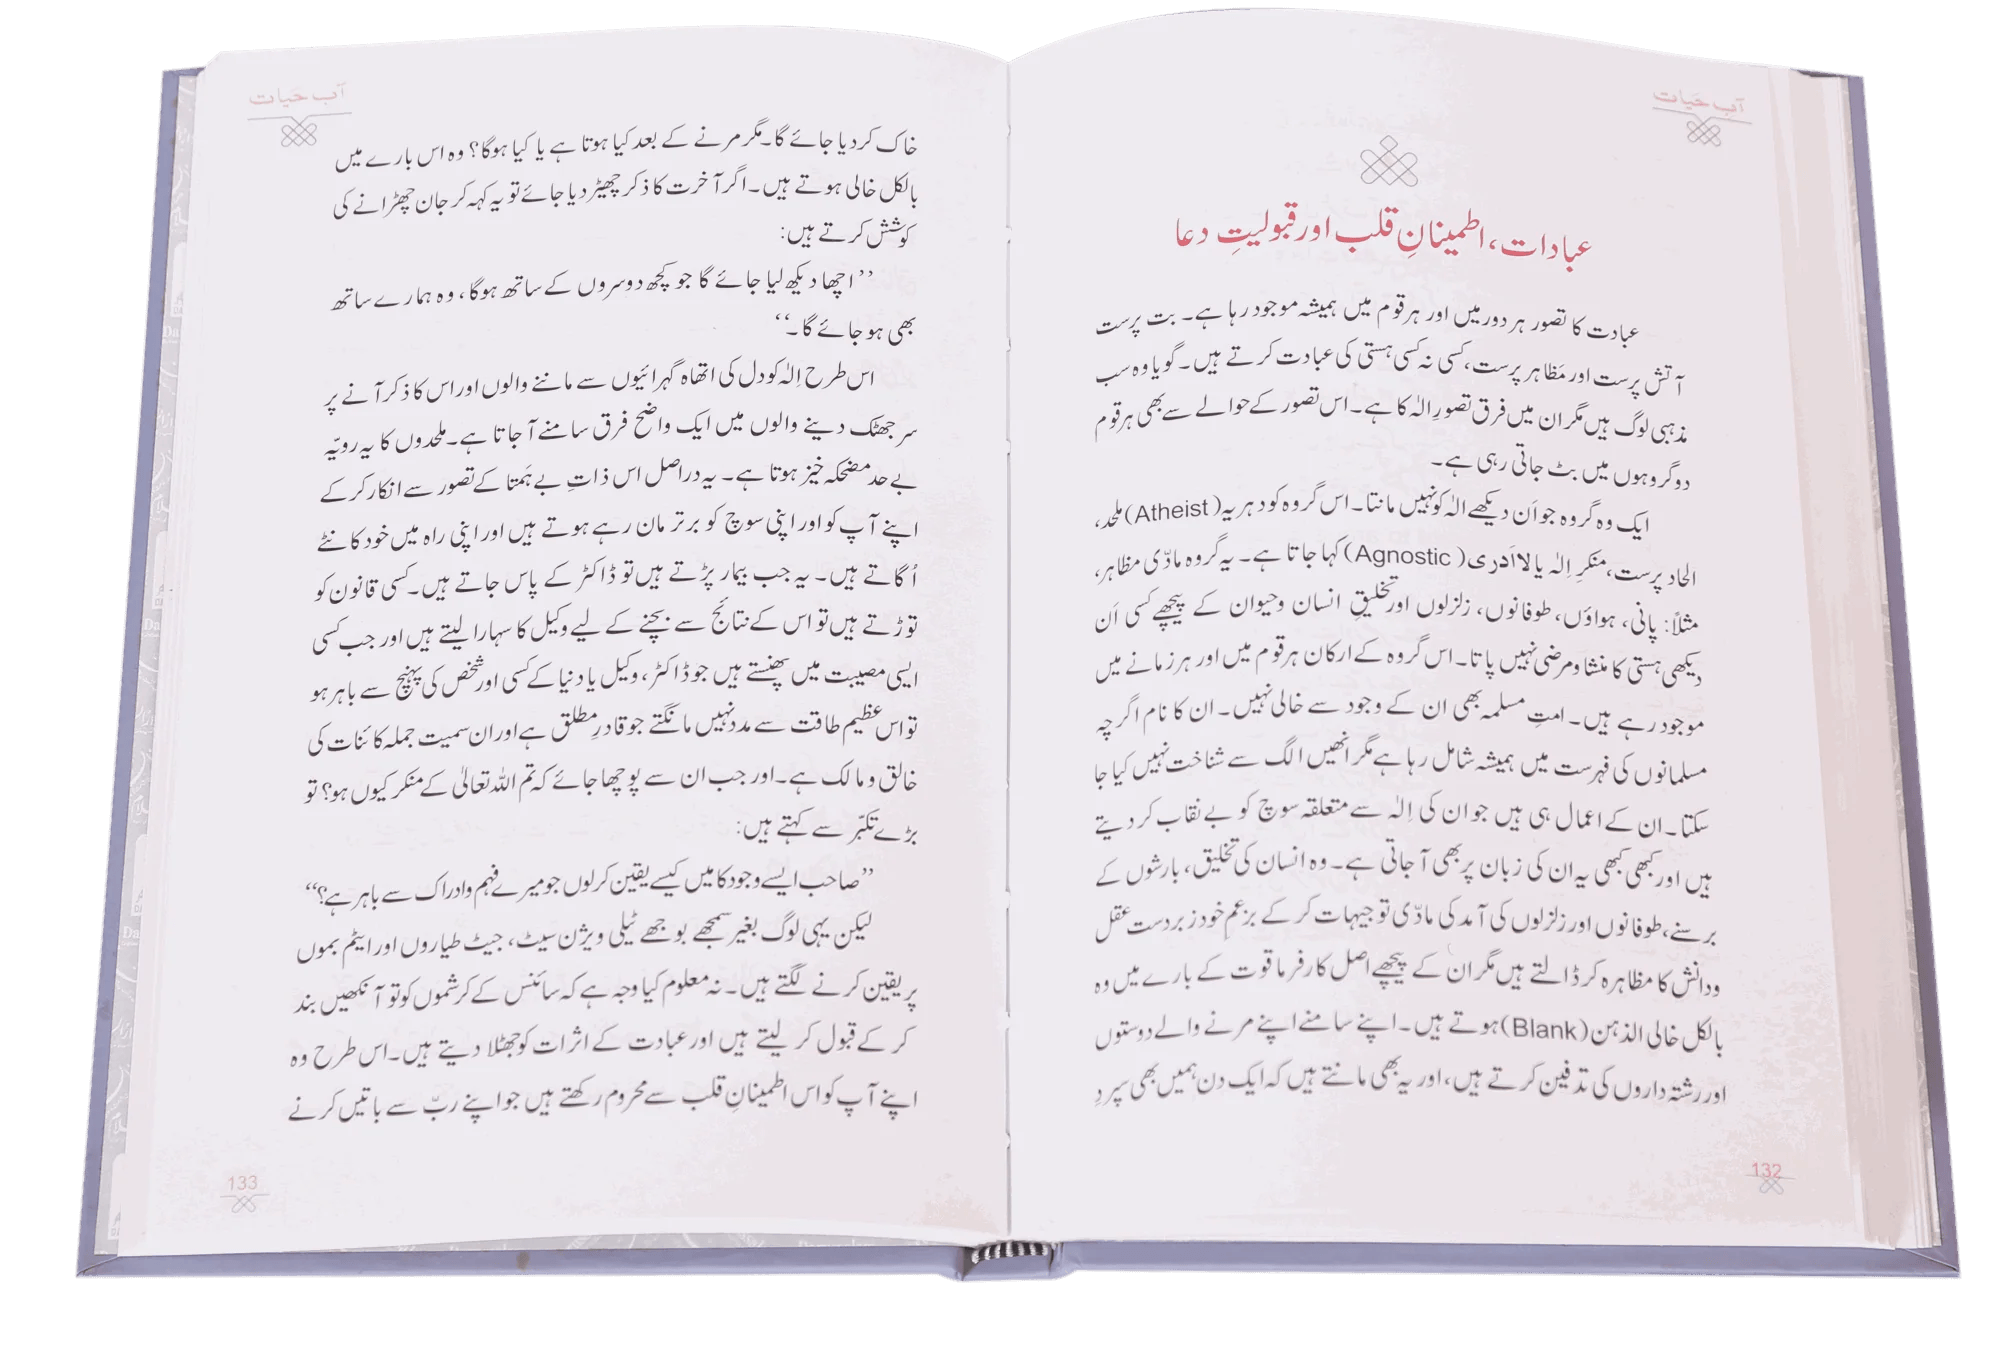 آب حیات
عبادات، اطمینانِ قلب اور قبولیتِ دعا
عبادت کا تصور ہر دور میں اور ہر قوم میں ہمیشہ موجود رہا ہے۔ بت پرست
آتش پرست اور مَظاہر پرست، کسی نہ کسی ہستی کی عبادت کرتے ہیں۔ گویا وہ سب
مذہبی لوگ ہیں مگر ان میں فرق تصورِ الٰہ کا ہے۔ اس تصور کے حوالے سے بھی ہر قوم
دو گروہوں میں بٹ جاتی رہی ہے۔
ایک وہ گروہ جو اَن دیکھے الٰہ کو نہیں مانتا۔ اس گروہ کو دہریہ (Atheist) ملحد،
الحاد پرست، منکرِ اِلٰہ یا لا اَدری (Agnostic) کہا جاتا ہے۔ یہ گروہ مادّی مظاہر،
مثلاً: پانی، ہواؤں، طوفانوں، زلزلوں اور تخلیقِ انسان وحیوان کے پیچھے کسی اَن
دیکھی ہستی کا منشا و مرضی نہیں پاتا۔ اس گروہ کے ارکان ہر قوم میں اور ہر زمانے میں
موجود رہے ہیں۔ امتِ مسلمہ بھی ان کے وجود سے خالی نہیں۔ ان کا نام اگرچہ
مسلمانوں کی فہرست میں ہمیشہ شامل رہا ہے مگر انھیں الگ سے شناخت نہیں کیا جا
سکتا۔ ان کے اعمال ہی ہیں جو ان کی اِلٰہ سے متعلقہ سوچ کو بے نقاب کر دیتے
ہیں اور کبھی کبھی یہ ان کی زبان پر بھی آ جاتی ہے۔ وہ انسان کی تخلیق، بارشوں کے
برسنے، طوفانوں اور زلزلوں کی آمد کی مادّی توجیہات کر کے بزعمِ خود زبردست عقل
ودانش کا مظاہرہ کر ڈالتے ہیں مگر ان کے پیچھے اصل کارفرما قوت کے بارے میں وہ
بالکل خالی الذہن (Blank) ہوتے ہیں۔ اپنے سامنے اپنے مرنے والے دوستوں
اور رشتہ داروں کی تدفین کرتے ہیں، اور یہ بھی مانتے ہیں کہ ایک دن ہمیں بھی سپردِ
132
آب حیات
خاک کر دیا جائے گا۔ مگر مرنے کے بعد کیا ہوتا ہے یا کیا ہوگا؟ وہ اس بارے میں
بالکل خالی ہوتے ہیں۔ اگر آخرت کا ذکر چھیڑ دیا جائے تو یہ کہہ کر جان چھڑانے کی
کوشش کرتے ہیں:
’’اچھا دیکھ لیا جائے گا جو کچھ دوسروں کے ساتھ ہوگا، وہ ہمارے ساتھ
بھی ہو جائے گا۔‘‘
اس طرح اِلٰہ کو دل کی اتھاہ گہرائیوں سے ماننے والوں اور اس کا ذکر آنے پر
سر جھٹک دینے والوں میں ایک واضح فرق سامنے آ جاتا ہے۔ ملحدوں کا یہ رویّہ
بے حد مضحکہ خیز ہوتا ہے۔ یہ دراصل اس ذاتِ بے ہَمتا کے تصور سے انکار کر کے
اپنے آپ کو اور اپنی سوچ کو برتر مان رہے ہوتے ہیں اور اپنی راہ میں خود کانٹے
اُگاتے ہیں۔ یہ جب بیمار پڑتے ہیں تو ڈاکٹر کے پاس جاتے ہیں۔ کسی قانون کو
توڑتے ہیں تو اس کے نتائج سے بچنے کے لیے وکیل کا سہارا لیتے ہیں اور جب کسی
ایسی مصیبت میں پھنستے ہیں جو ڈاکٹر، وکیل یا دنیا کے کسی اور شخص کی پہنچ سے باہر ہو
تو اس عظیم طاقت سے مدد نہیں مانگتے جو قادرِ مطلق ہے اور ان سمیت جملہ کائنات کی
خالق و مالک ہے۔ اور جب ان سے پوچھا جائے کہ تم اللہ تعالیٰ کے منکر کیوں ہو؟ تو
بڑے تکبّر سے کہتے ہیں:
’’صاحب ایسے وجود کا میں کیسے یقین کر لوں جو میرے فہم و ادراک سے باہر ہے؟‘‘
لیکن یہی لوگ بغیر سمجھے بوجھے ٹیلی ویژن سیٹ، جیٹ طیاروں اور ایٹم بموں
پر یقین کرنے لگتے ہیں۔ نہ معلوم کیا وجہ ہے کہ سائنس کے کرشموں کو تو آنکھیں بند
کر کے قبول کر لیتے ہیں اور عبادت کے اثرات کو جھٹلا دیتے ہیں۔ اس طرح وہ
اپنے آپ کو اس اطمینانِ قلب سے محروم رکھتے ہیں جو اپنے ربّ سے باتیں کرنے
133